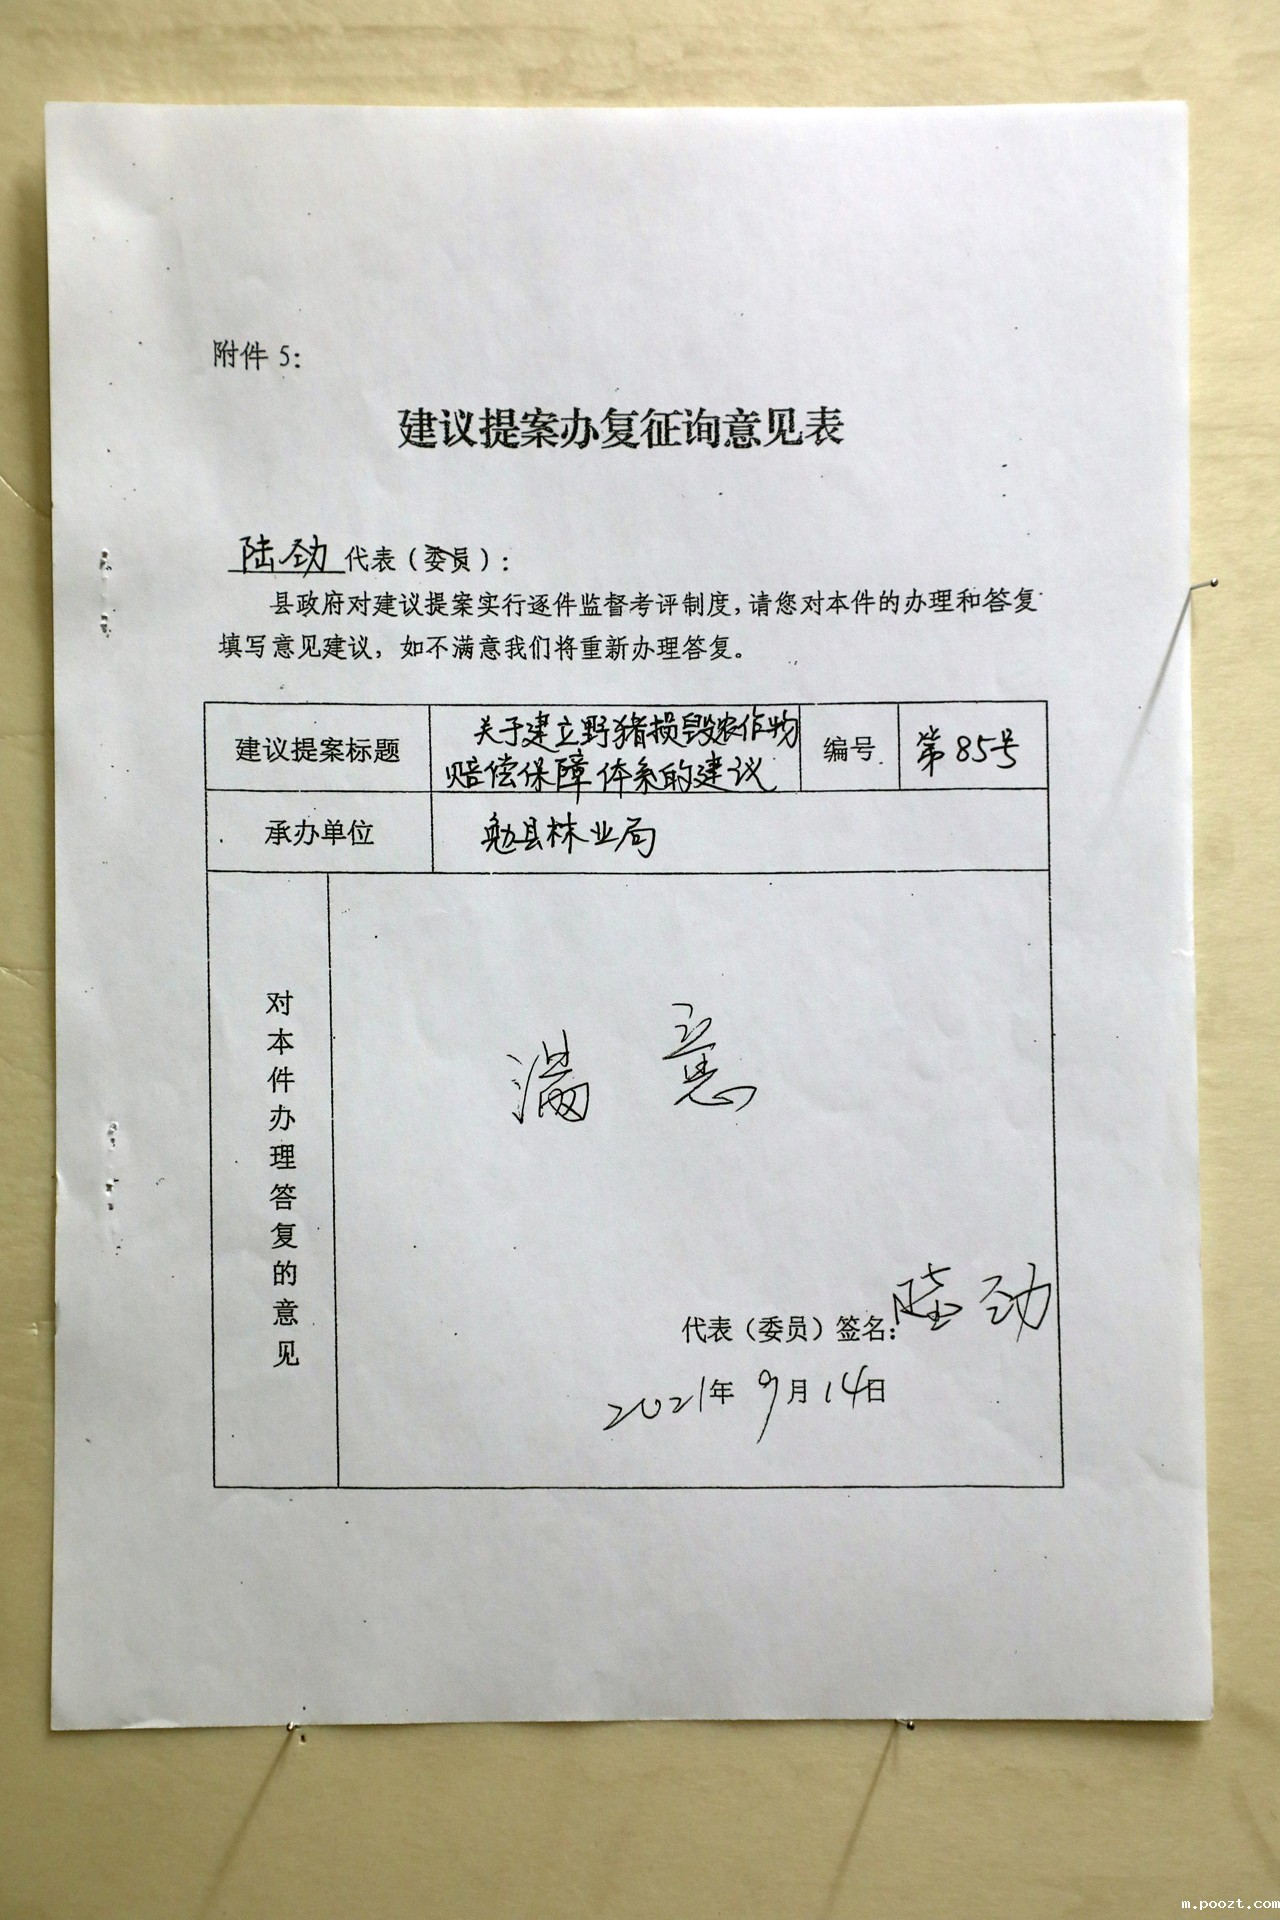 附件 5:
建议提案办复征询意见表
陆劲代表（委员）:
县政府对建议提案实行逐件监督考评制度,请您对本件的办理和答复
填写意见建议，如不满意我们将重新办理答复。
建议提案标题
关于建立野猪损毁农作物
赔偿保障体系的建议
编号
第85号
承办单位
勉县林业局
对本件办理答复的意见
满意
代表（委员）签名:陆劲
2021年9月14日
m.poozt.com